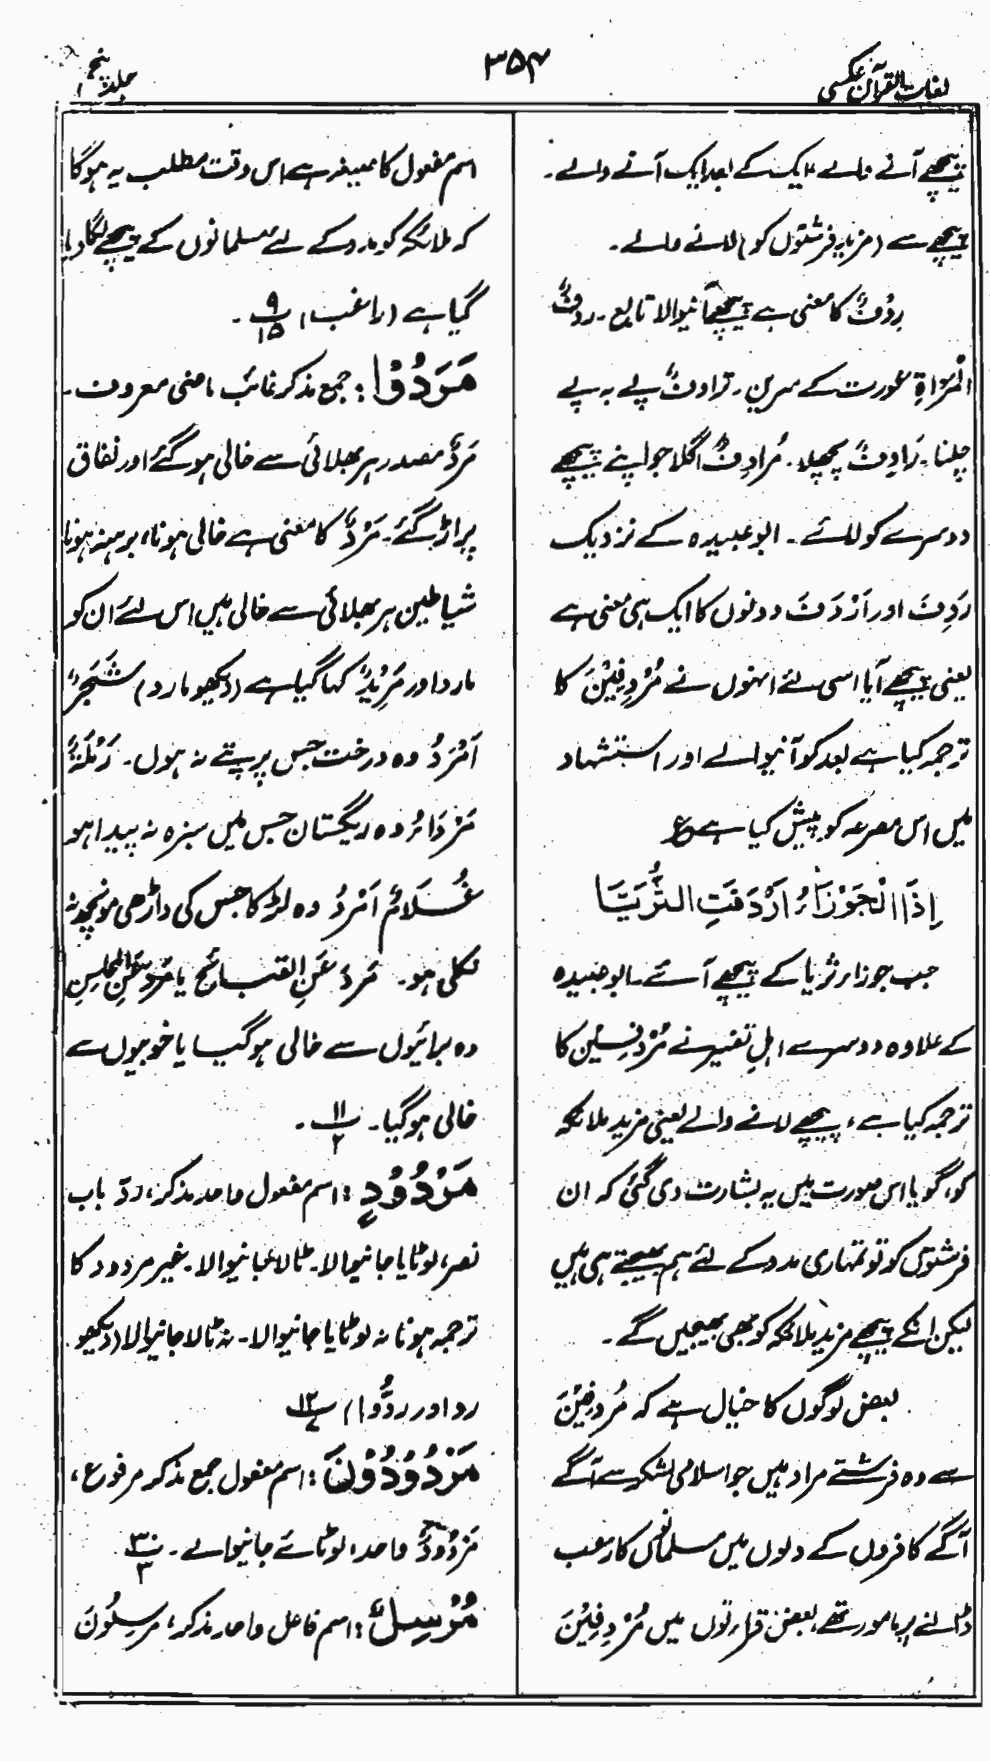 لغات القرآن عکسی
۳۵۴
جلد پنجم
پیچھے آنے والے ایک کے بعد ایک آنے والے۔
پیچھے سے (مزید فرشتوں کو) لانے والے۔
رِدْفٌ کا معنی ہے پیچھے آنیوالا تابع۔ ردفُ
الْمَرْاَۃِ عورت کے سرین۔ ترادفٌ پے بہ پے
چلنا۔ رَادِفٌ پچھلا۔ مُرادِفٌ اگلا جو اپنے پیچھے
دوسرے کو لائے۔ ابو عبیدہ کے نزدیک
رَدِفَ اور اَرْدَفَ دونوں کا ایک ہی معنی ہے
یعنی پیچھے آیا اسی لئے انہوں نے مُرْدِفِیْنَ کا
ترجمہ کیا ہے بعد کو آنیوالے اور استشہاد
میں اس مصرعہ کو پیش کیا ہے ع
اِذَا الْجَوْزَاءُ اَرْدَفَتِ الثُّرَیَّا
جب جوزاء ثریا کے پیچھے آئے۔ ابو عبیدہ
کے علاوہ دوسرے اہلِ تفسیر نے مُرْدِفِیْن کا
ترجمہ کیا ہے، پیچھے لانے والے یعنی مزید ملائکہ
کو، گویا اس صورت میں یہ بشارت دی گئی کہ ان
فرشتوں کو تو تمہاری مدد کے لئے ہم بھیجتے ہی ہیں
لیکن انکے پیچھے مزید ملائکہ کو بھی بھیجیں گے۔
بعض لوگوں کا خیال ہے کہ مُردِفِیْنَ
سے وہ فرشتے مراد ہیں جو اسلامی لشکر سے آگے
آگے کافروں کے دلوں میں مسلمانوں کا رعب
ڈالنے پر مامور تھے، بعض قراءتوں میں مُرْدَفِیْنَ
اسم مفعول کا صیغہ ہے اس وقت مطلب یہ ہوگا
کہ ملائکہ کو مدد کے لئے مسلمانوں کے پیچھے لگا دیا
گیا ہے (راغب) ۹/۱۵۔
مَرَدُوْا: جمع مذکر غائب ماضی معروف۔
مَرْدٌ مصدر ہر بھلائی سے خالی ہو گئے اور نفاق
پر اڑ گئے۔ مَرْدٌ کا معنی ہے خالی ہونا، برہنہ ہونا
شیاطین ہر بھلائی سے خالی ہیں اس لئے ان کو
مارد اور مَرِیْدٌ کہا گیا ہے (دیکھو مارد) شَجَرٌ
اَمْرَدُ وہ درخت جس پر پتے نہ ہوں۔ رَمْلَۃٌ
مَرْدَاءُ وہ ریگستان جس میں سبزہ نہ پیدا ہو
غُلَامٌ اَمْرَدُ وہ لڑکا جس کی داڑھی مونچھ نہ
نکلی ہو۔ مَرَدَ عَنِ القبائح یا مَرَدَ عَنِ المحاسِنِ
وہ برائیوں سے خالی ہو گیا یا خوبیوں سے
خالی ہو گیا۔ ۱۱/۲۔
مَرْدُوْدٍ: اسم مفعول واحد مذکر، ردّ باب
نصر، لوٹایا جانیوالا۔ ٹالا جانیوالا۔ غیر مردود کا
ترجمہ ہوا نہ لوٹایا جانیوالا۔ نہ ٹالا جانیوالا (دیکھو
رد اور ردُّوا) ۱۲/۷
مَرْدُوْدُوْنَ: اسم مفعول جمع مذکر مرفوع،
مَرْدُودٌ واحد، لوٹائے جانیوالے۔ ۳۰/۳
مُرْسِلٌ: اسم فاعل واحد مذکر، مرسِلُونَ